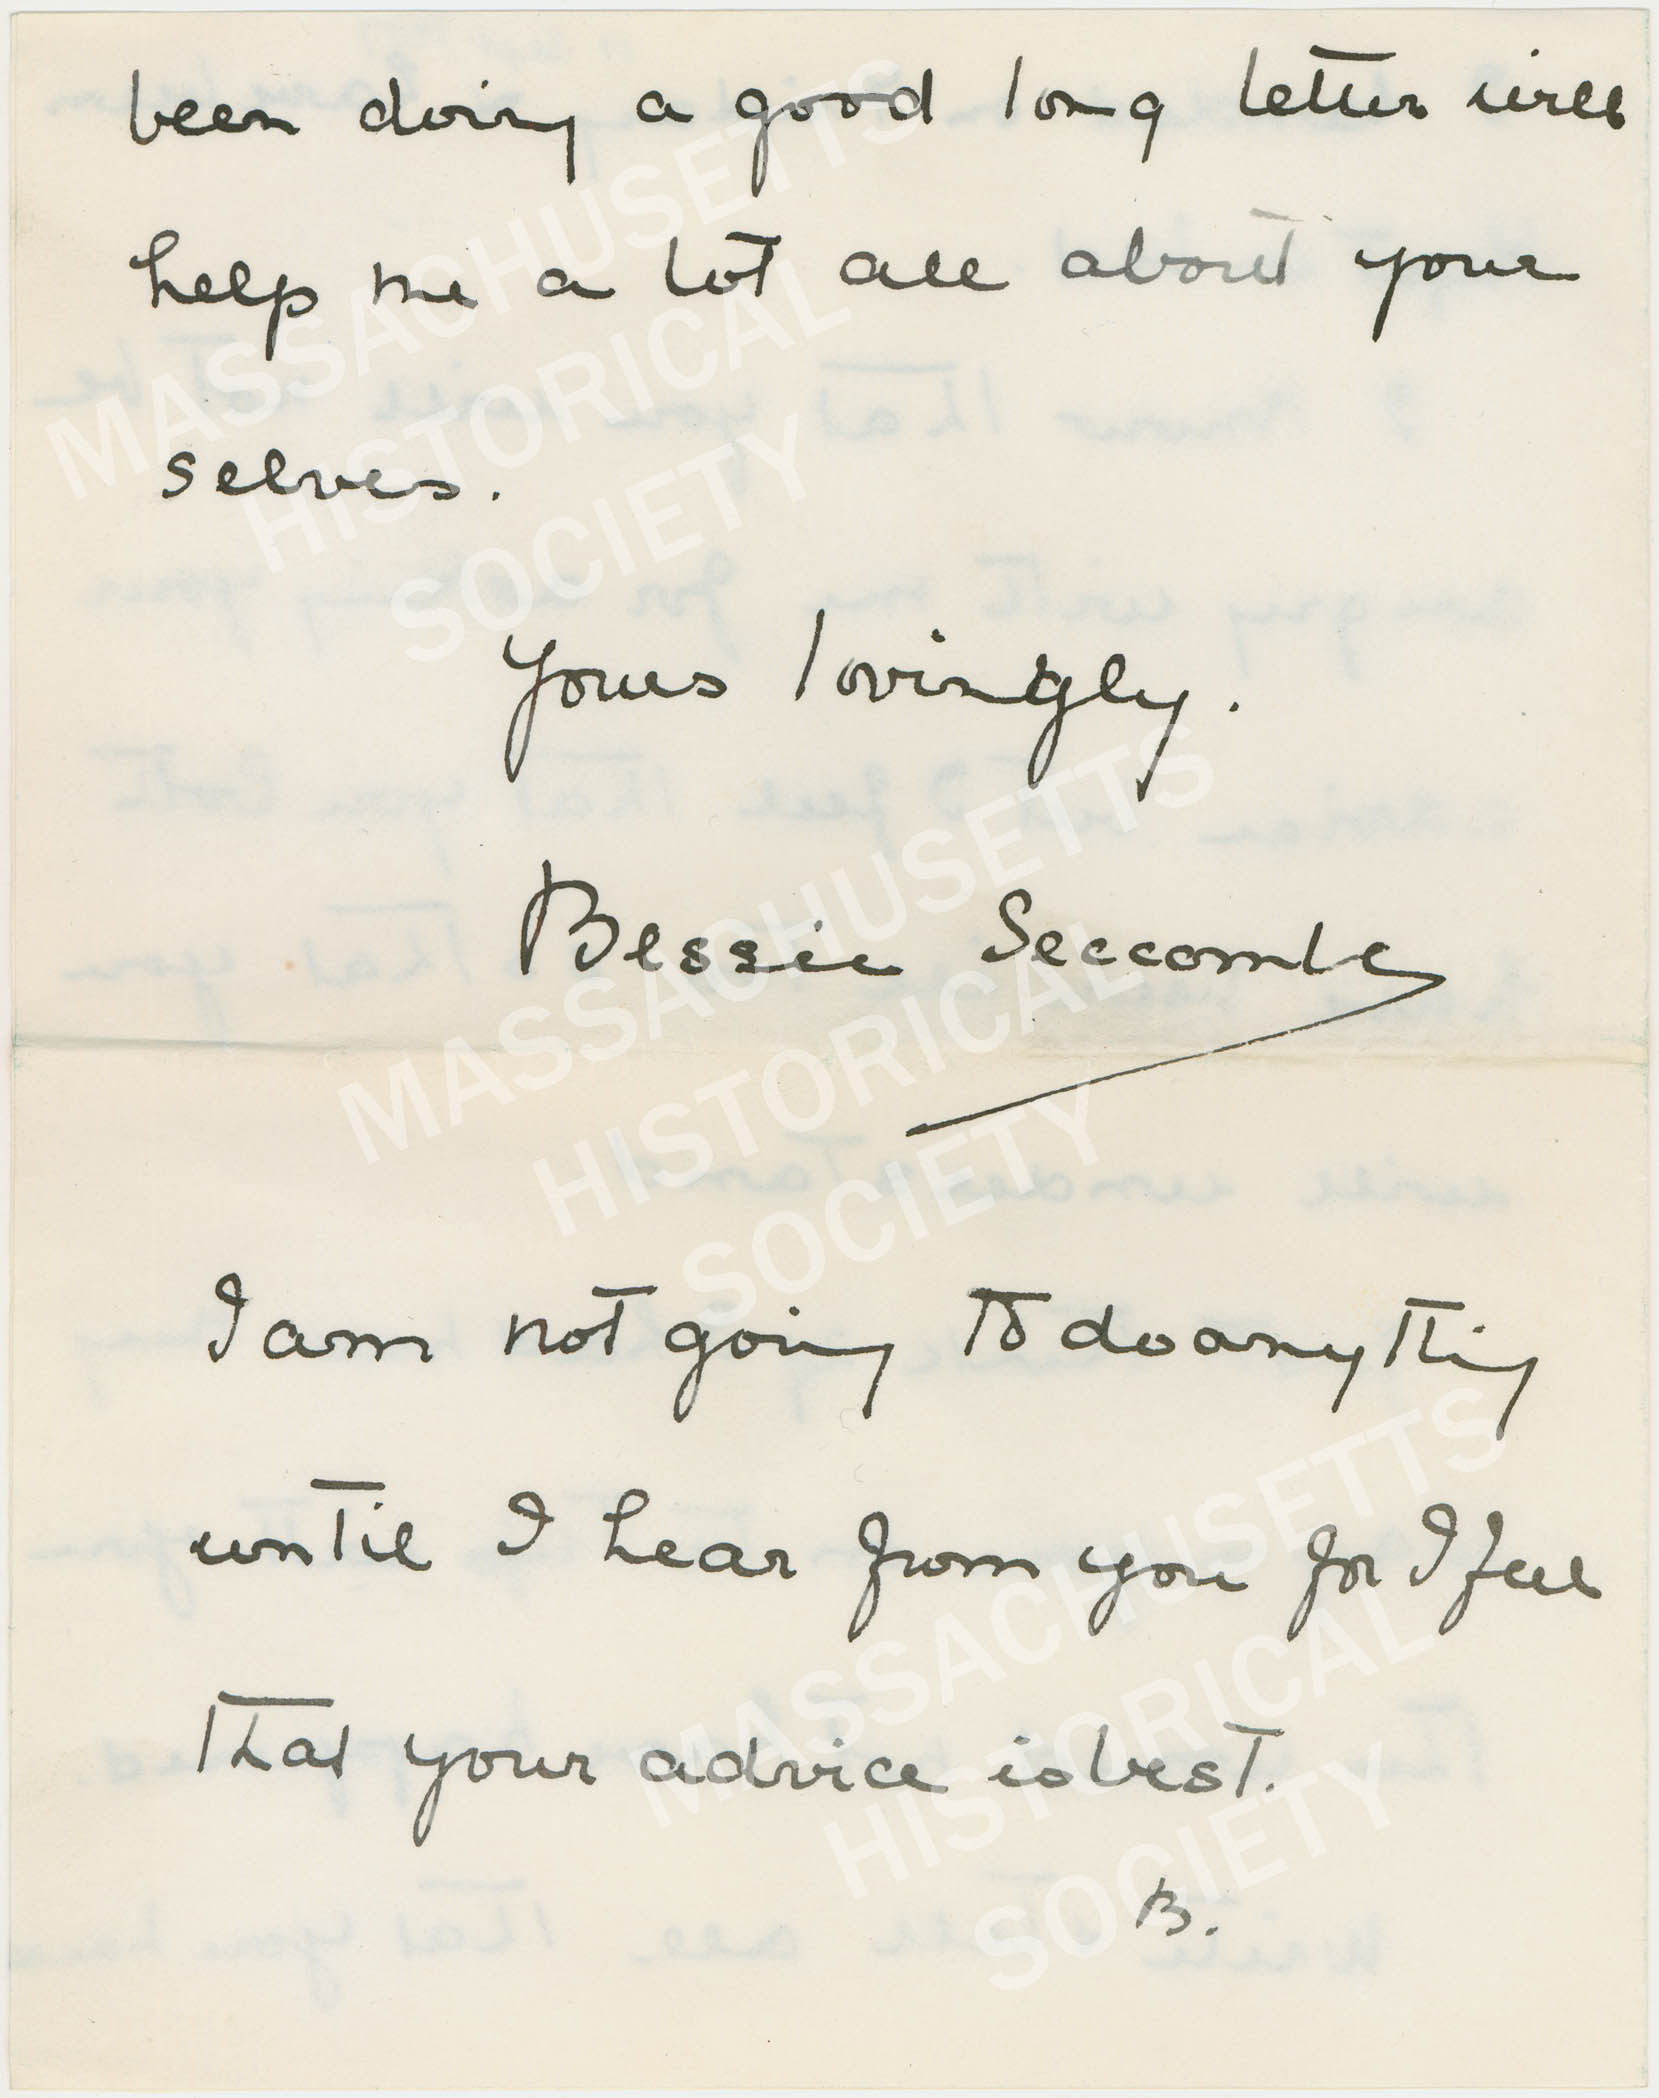 been doing a good long letter will
help me a lot all about your
selves.
Yours lovingly.
Bessie Seccombe
I am not going to do anything
until I hear from you for I feel
that your advice is best.
B.
MASSACHUSETTS
HISTORICAL
SOCIETY
MASSACHUSETTS
HISTORICAL
SOCIETY
MASSACHUSETTS
HISTORICAL
SOCIETY